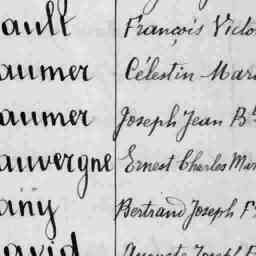 ault François Victo
aumer Célestin Mari
aumer Joseph Jean Bte
auvergne Ernest Charles Mar
any Bertrand Joseph F
avid Auguste Joseph F